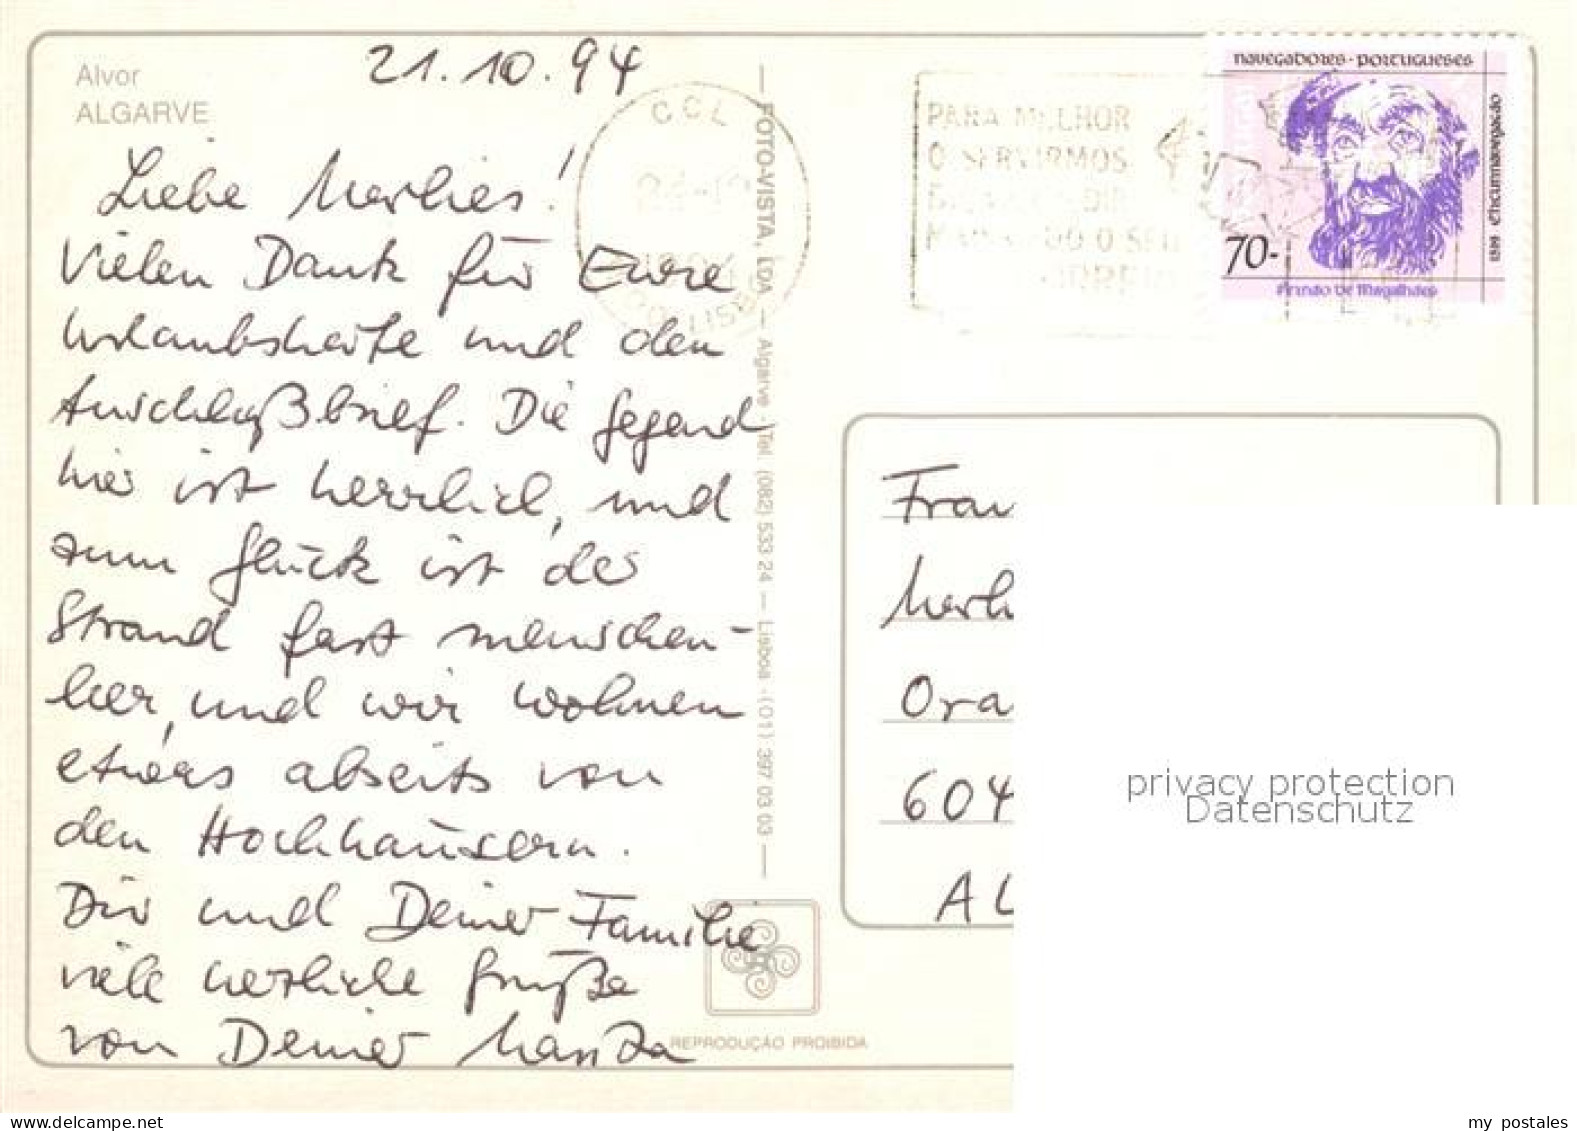 Alvor
ALGARVE
21.10.94
Liebe Marlies!
Vielen Dank für Eure
Urlaubskarte und den
Anschlußbrief. Die Gegend
hier ist herrlich, und
zum Glück ist der
Strand fast menschen-
leer, und wir wohnen
etwas abseits von
den Hochhäusern.
Dir und Deiner Familie
viele herzliche Grüße
von Deiner
FOTO-VISTA, LDA — Algarve - Tel. (082) 533 24 — Lisboa - (01) 397 03 03 —
REPRODUÇÃO PROIBIDA
CCL
LISBO
PARA MELHOR
O SERVIRMOS
NAVEGADORES · PORTUGUESES
70-
Fernão de Magalhães
1519 Circumnavegação
Frau
Marli
Ora
604
AL
privacy protection
Datenschutz
www.delcampe.net
my_postales